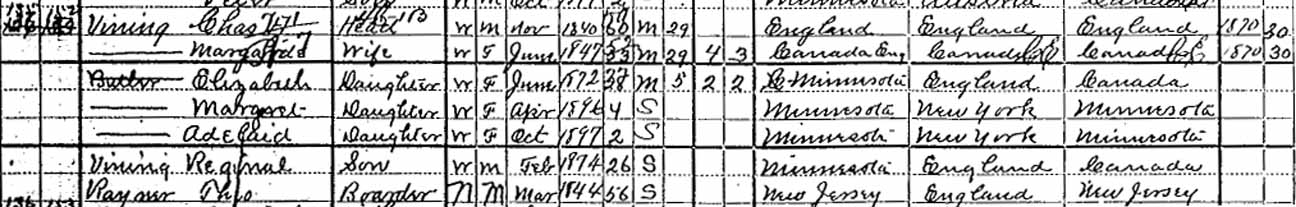 Vining Chas Head W M Nov 1840 M 29 England England England 1870 30
Wife W F June 1847 M 29 4 3 Canada Eng Canada Canada 1870 30
Butler Elizabeth Daughter W F June 1872 M 5 2 2 Minnesota England Canada
Margaret Daughter W F Apr 1896 4 S Minnesota New York Minnesota
Adelaid Daughter W F Oct 1897 2 S Minnesota New York Minnesota
Vining Reginal Son W M Feb 1874 26 S Minnesota England Canada
Raynor Theo Boarder M Mar 1844 56 S New Jersey England New Jersey